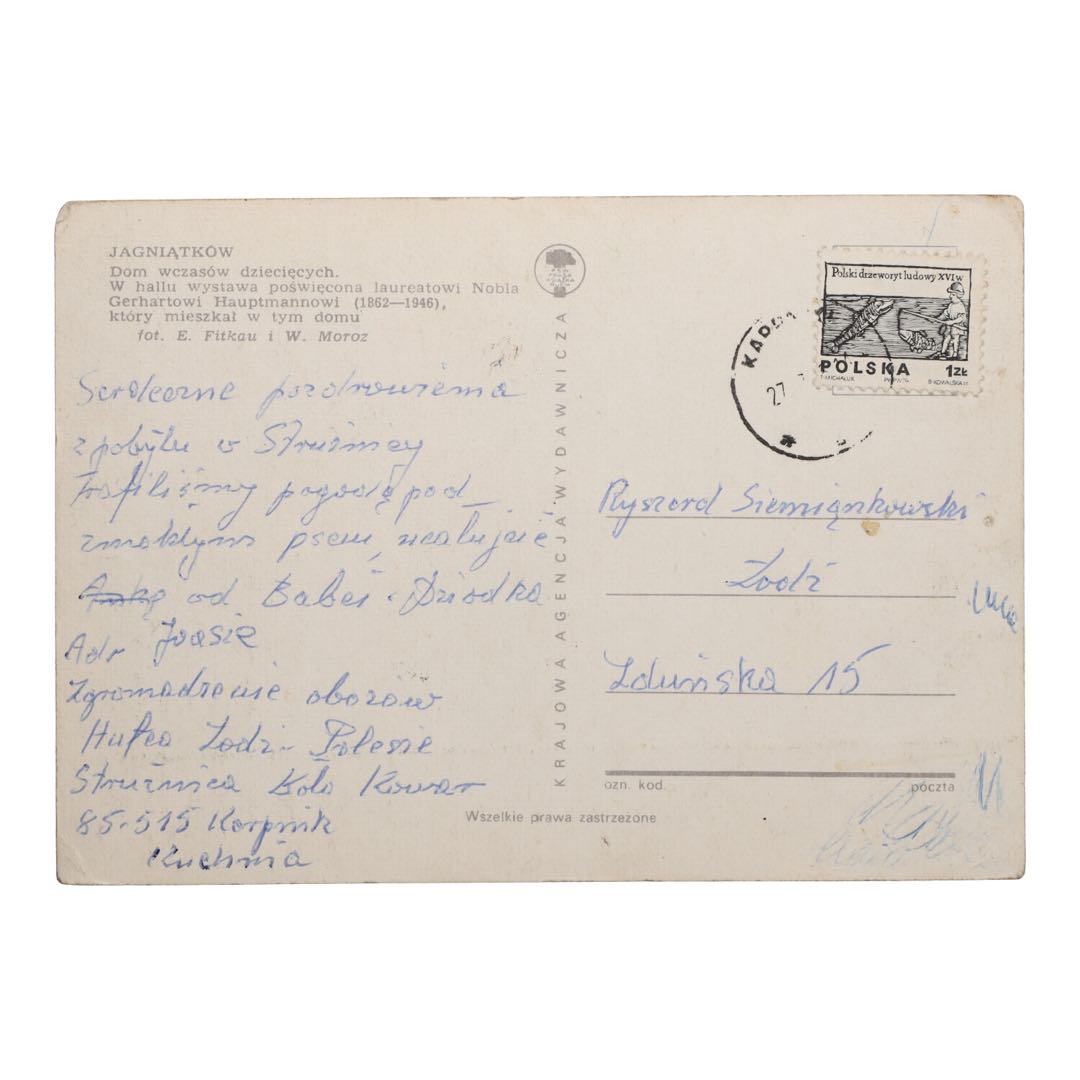 JAGNIĄTKÓW
Dom wczasów dziecięcych.
W hallu wystawa poświęcona laureatowi Nobla
Gerhartowi Hauptmannowi (1862—1946),
który mieszkał w tym domu
fot. E. Fitkau i W. Moroz
Serdeczne pozdrowienia
z pobytu w Strużnicy
trafiliśmy pogodę pod
zmokłym psem, ucałujcie
od Babci i Dziadka
Joasię
Adr
Zgromadzenie obozów
Hufca Łodzi-Polesie
Strużnica Koło Kowar
85-515 Karpnik
Kuchnia
KRAJOWA AGENCJA WYDAWNICZA
Polski drzeworyt ludowy XVI w
POLSKA 1ZŁ
T. MICHALUK PWPW 76 B. KOWALSKA
27
Ryszard Siemiąnkowski
Łodź
Zduńska 15
ozn. kod. poczta
Wszelkie prawa zastrzeżone